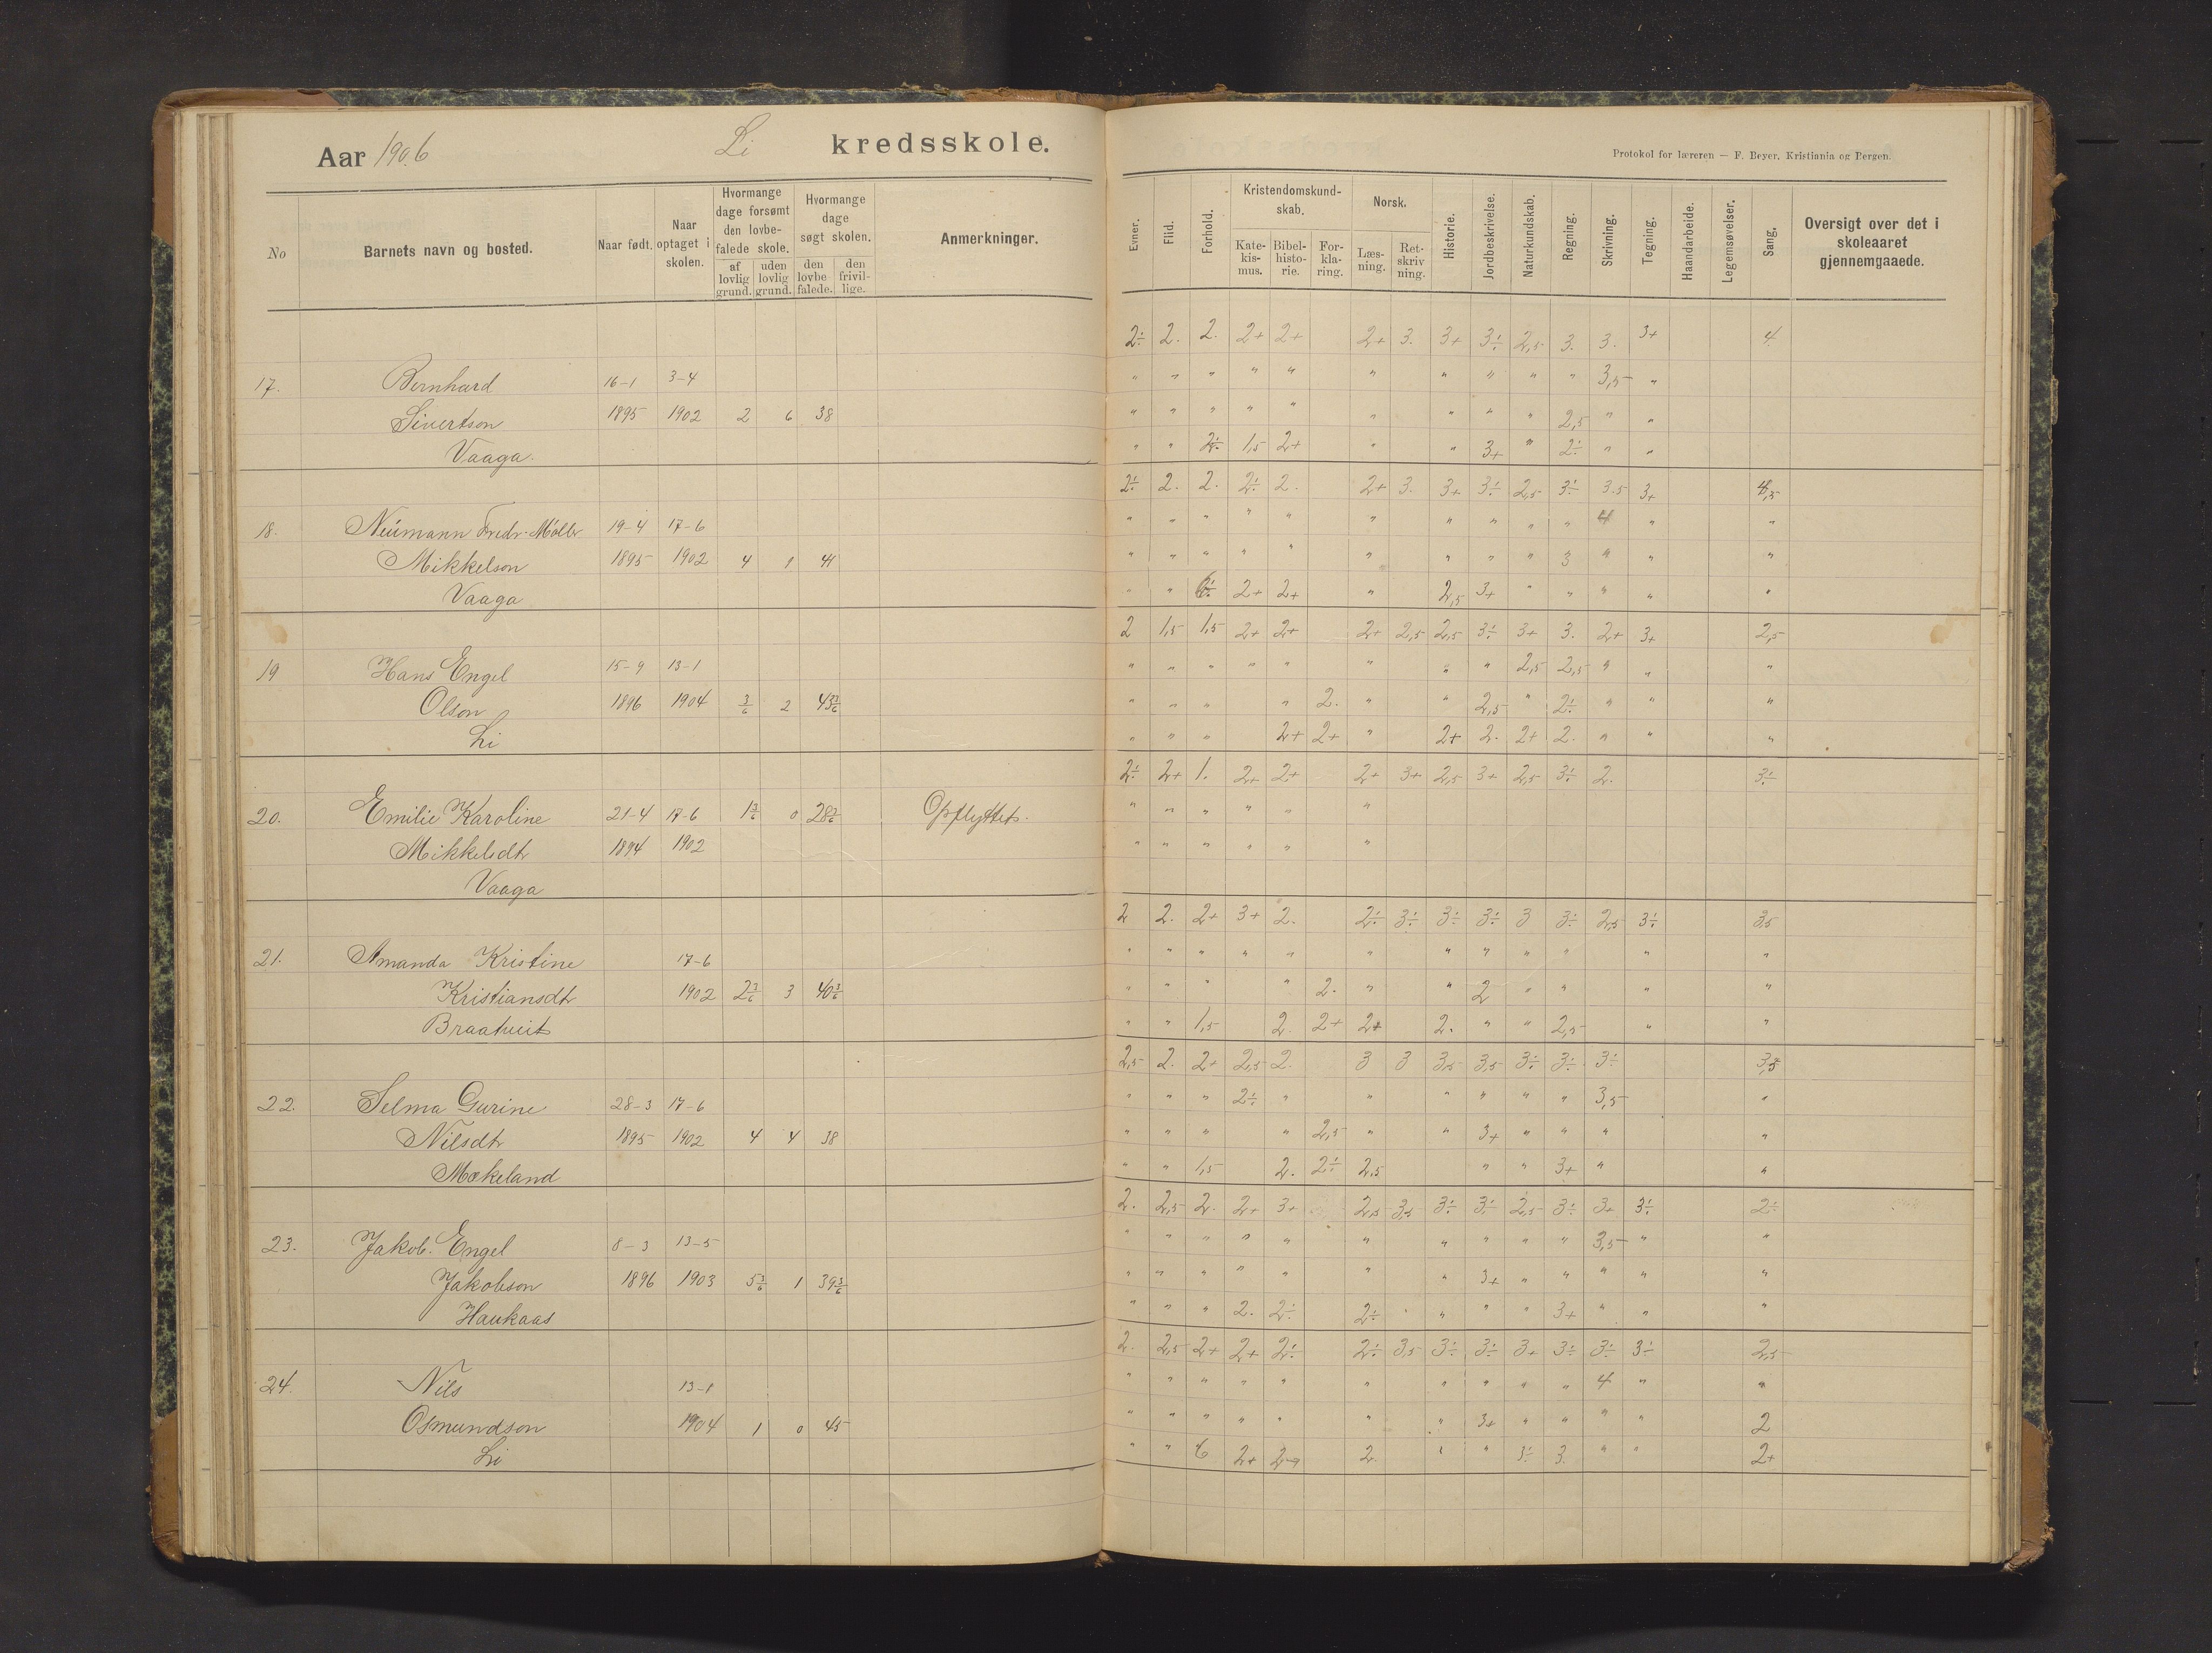 Aar 1906 Li kredsskole.
Protokol for læreren — F. Beyer, Kristiania og Bergen.
No Barnets navn og bosted. Naar født. Naar optaget i skolen. Hvormange dage forsømt den lovbefalede skole. af lovlig grund. uden lovlig grund. Hvormange dage søgt skolen. den lovbefalede. den frivillige. Anmerkninger.
Evner. Flid. Forhold. Kristendomskundskab. Katekismus. Bibelhistorie. Forklaring. Norsk. Læsning. Retskrivning. Historie. Jordbeskrivelse. Naturkundskab. Regning. Skrivning. Tegning. Haandarbeide. Legemsøvelser. Sang. Oversigt over det i skoleaaret gjennemgaaede.
2÷ 2. 2. 2+ 2+ 2+ 3. 3+ 3÷ 2,5 3. 3. 3+ 4
17. Bernhard 16-1 3-4 " " " " " " " " " " 3,5 "
Sivertson 1895 1902 2 6 38 " " " " " " " " " 2,5 " "
Vaaga. " " 2÷ 1,5 2+ " " 3+ " 2÷ " "
2÷ 2. 2. 2÷ 2. 2+ 3. 3+ 3÷ 2,5 3÷ 3.5 3+ 4,5
18. Neümann Fredr. Møller 19-4 17-6 " " " " " " " " " " 4 " "
Mikkelson 1895 1902 4 1 41 " " " " " " " " " 3 " " "
Vaaga " " 2+ 2+ " 2,5 3+ " " " " "
2 1,5 1,5 2+ 2+ 2+ 2,5 2,5 3÷ 3+ 3. 2+ 3+ 2,5
19 Hans Engel 15-9 13-1 " " " " " " " " 2,5 2,5 " " "
Olson 1896 1904 3/6 2 43 3/6 " " " " 2. " " 2,5 " 2÷ " " "
Li " " " 2+ 2+ " 2+ 2. 2+ 2. " " "
2÷ 2+ 1. 2+ 2+ 2+ 3+ 2,5 3+ 2,5 3÷ 2. 3÷
20. Emilie Karoline 21-4 17-6 1 3/6 0 28 3/6 Opflyttet. " " " " " "
Mikkelsdt 1894 1902 " " " " " "
Vaaga
2 2. 2+ 3+ 2. 2÷ 3÷ 3÷ 3÷ 3 3÷ 2,5 3÷ 3,5
21. Amanda Kristine 17-6 " " " " " " " " " " " "
Kristiansdt 1902 2 3/6 3 40 3/6 " " " " 2. " " 2 " " " "
Braatveit " " 1,5 2. 2+ 2+ 2. " " 2,5 " "
2,5 2. 2+ 2,5 2. 3 3 3,5 3,5 3÷ 3÷ 3÷ 3,5
22. Selma Gurine 28-3 17-6 " " " 2÷ " " " " " " 3,5 "
Nilsdt 1895 1902 4 4 38 " " " " 2,5 " " 3+ " " " "
Mækeland " " 1,5 2. 2÷ 2,5 " " 3+ " "
2. 2,5 2. 2+ 3+ 2,5 3,5 3÷ 3÷ 2,5 3÷ 3+ 3÷ 2÷
23. Jakob Engel 8-3 13-5 " " " " " " " " " " 3,5 " "
Jakobson 1896 1903 5 3/6 1 39 3/6 " " " " " " " 3+ " " " " "
Haukaas " " " 2. 2÷ 2÷ " " " " 3+ " " "
2. 2,5 2+ 2+ 2÷ 2÷ 3,5 3÷ 3÷ 3+ 3÷ 3÷ 3÷ 2,5
24. Nils 13-1 " " " " " " " " " " 4 " "
Osmundson 1904 1 0 45 " " " " " " " 3+ " " " " 2
Li " " 2+ 2. " " 3÷ 3. " " 2+